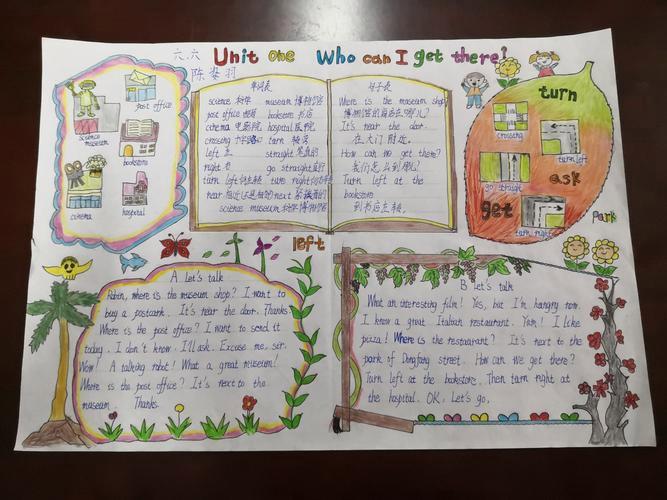 Unit one Who can I get there!
六.六
陈 羽
science museum
post office
bookstore
cinema
hospital
单词表
science 科学 museum 博物馆
post office 邮局 bookstore 书店
cinema 电影院 hospital 医院
crossing 十字路口 turn 转弯
left 左 straight 笔直的
right 右 go straight 直行
turn left 向左转 turn right 向右转
near 附近 next
science museum 科学博物馆
句子表
Where is the museum shop?
博物馆的商店在哪儿?
It's near the door.
在大门附近。
How can we get there?
我们怎么到那儿?
Turn left at the
bookstore
到书店左转。
turn
crossing
turn left
go straight
ask
get
turn right
Park
left
A Let's talk
Robin, where is the museum shop? I want to
buy a postcard. It's near the door. Thanks.
Where is the post office? I want to send it
today. I don't know. I'll ask. Excuse me, sir.
Wow! A talking robot! What a great museum!
Where is the post office? It's next to the
museum. Thanks.
B Let's talk
What an interesting film! Yes, but I'm hungry now.
I know a great Italian restaurant. Yum! I like
pizza! Where is the restaurant? It's next to the
park of Dongfang street. How can we get there?
Turn left at the bookstore. Then turn right at
the hospital. OK, Let's go.